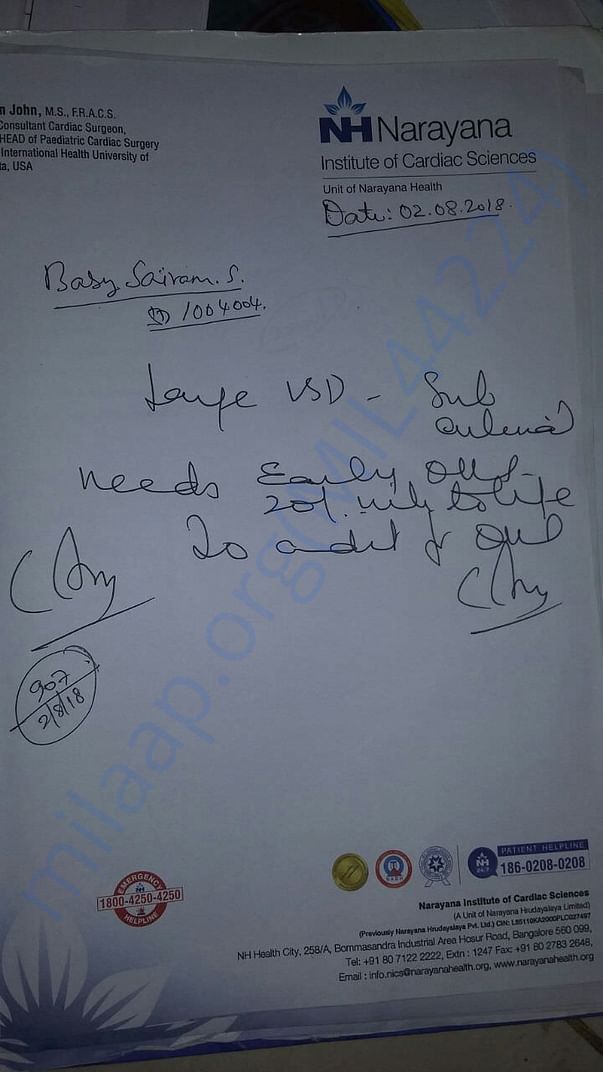 n John, M.S., F.R.A.C.S.
Consultant Cardiac Surgeon,
HEAD of Paediatric Cardiac Surgery
International Health University of
ta, USA
NH Narayana
Institute of Cardiac Sciences
Unit of Narayana Health
Date: 02.08.2018.
Baby Sairam. S.
1004004.
Large VSD - Sub
needs Early
20%. risk to life
To admit for
907
2/8/18
milaap.org(MIL442224)
EMERGENCY
1800-4250-4250
HELPLINE
24/7
PATIENT HELPLINE
186-0208-0208
Narayana Institute of Cardiac Sciences
(A Unit of Narayana Hrudayalaya Limited)
(Previously Narayana Hrudayalaya Pvt. Ltd.) CIN: L85110KA2000PLC027497
NH Health City, 258/A, Bommasandra Industrial Area Hosur Road, Bangalore 560 099,
Tel: +91 80 7122 2222, Extn : 1247 Fax: +91 80 2783 2648,
Email : info.nics@narayanahealth.org, www.narayanahealth.org